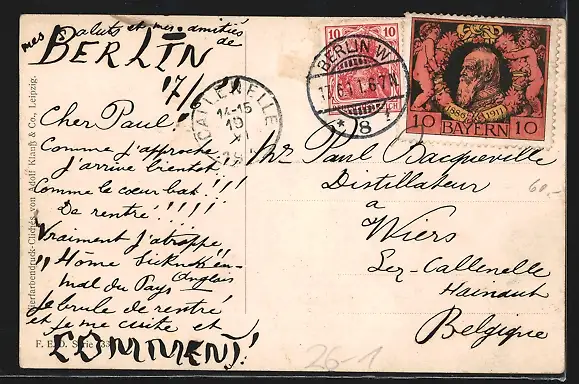 mes Saluts et mes amitiés
de
BERLIN
17/6
Cher Paul
Comme j'approche
J'arrive bientot!
Comme le cœur bat!!!
De rentré!!!!!
Vraiment j'atrappe
"Home
mal du Pays Anglais
Je brule de rentré
et je me cuite et
COMMENT!
F. E. D. Serie 33
Vierfarbendruck-Clichés von Adolf Klauß & Co., Leipzig.
14-15
19
10
10
BERLIN W
17.6.11.6-7N
* 8
1886 1911
10 BAYERN 10
Mr Paul Bacqueville
Distillateur
a
Wiers
Lez-Callenelle
Hainaut
Belgique
60.-
26-1